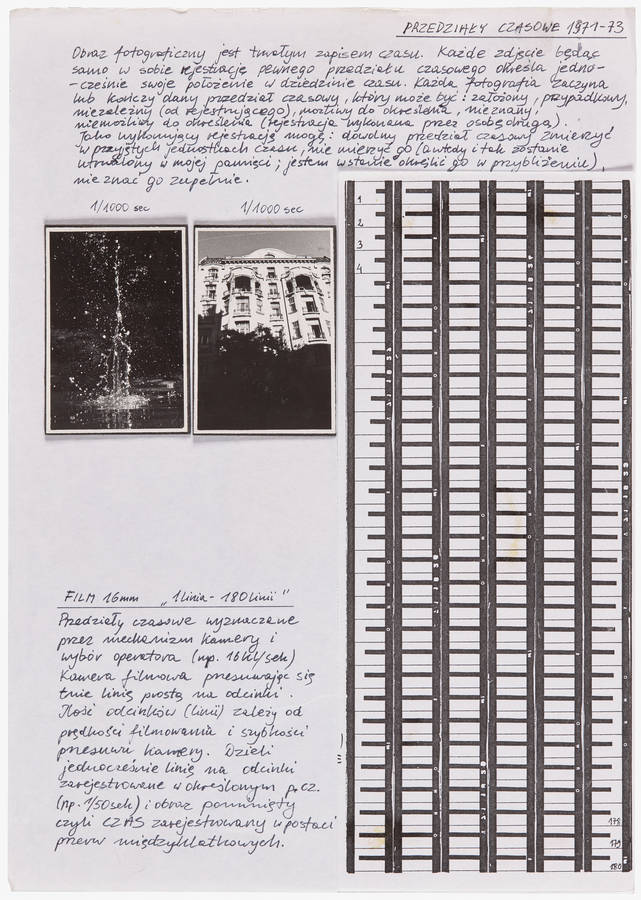 PRZEDZIAŁY CZASOWE 1971-73
Obraz fotograficzny jest trwałym zapisem czasu. Każde zdjęcie będąc
samo w sobie rejestracją pewnego przedziału czasowego określa jedno-
-cześnie swoje położenie w dziedzinie czasu. Każda fotografia zaczyna
lub kończy dany przedział czasowy, który może być: założony, przypadkowy,
niezależny (od rejestrującego), możliwy do określenia, nieznany,
niemożliwy do określenia (rejestracja wykonana przez osobę drugą).
Jako wykonujący rejestrację mogę: dowolny przedział czasowy zmierzyć
w przyjętych jednostkach czasu, nie mierzyć go (a wtedy i tak zostanie
utrwalony w mojej pamięci; jestem w stanie określić go w przybliżeniu),
nie znać go zupełnie.
1/1000 sec
1/1000 sec
1
2
3
4
FILM 16mm „1 linia - 180 linii"
Przedziały czasowe wyznaczane
przez mechanizm kamery i
wybór operatora (np. 16 kl/sek)
Kamera filmowa przesuwając się
tnie linię prostą na odcinki.
Ilość odcinków (linii) zależy od
prędkości filmowania i szybkości
przesuwu kamery. Dzieli
jednocześnie linię na odcinki
zarejestrowane w określonym p. cz.
(np. 1/50 sek) i obraz pominięty
czyli CZAS zarejestrowany w postaci
przerw międzyklatkowych.
178
179
180